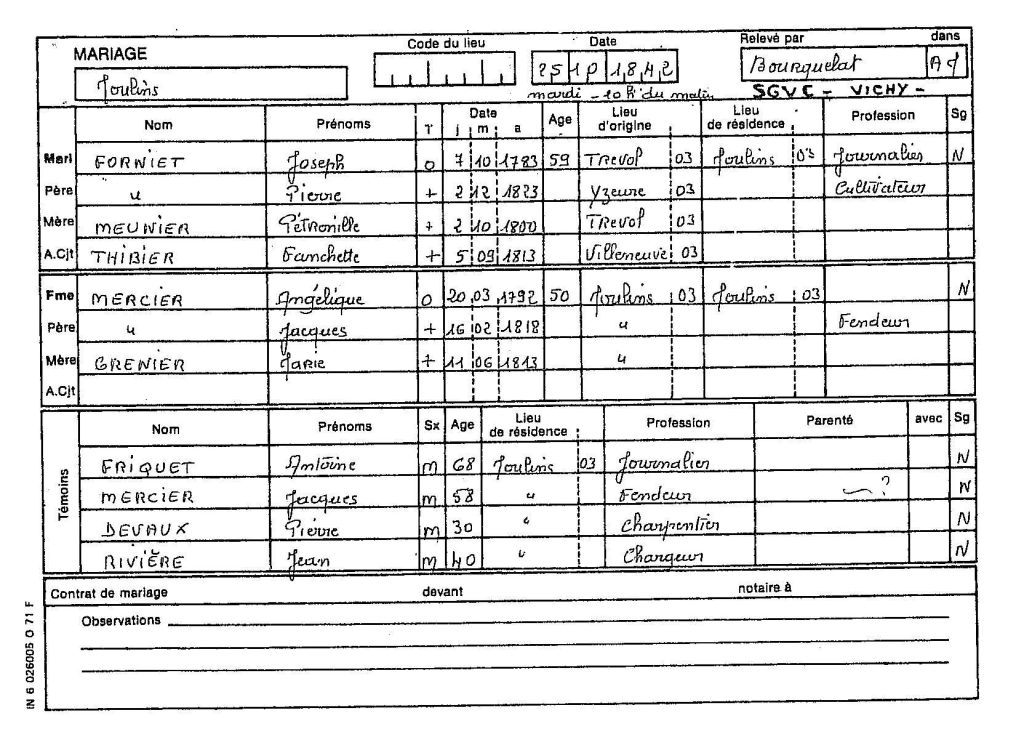 MARIAGE Code du lieu Date Relevé par dans
Moulins 25 10 1842 Bourquelat Ad
mardi - 10 h du matin SGVC - VICHY -
Nom Prénoms T Date j m a Age Lieu d'origine Lieu de résidence Profession Sg
Mari FORNIET Joseph O 7 10 1783 59 Trevol 03 Moulins 03 Journalier N
Père " Pierre + 2 12 1823 Yzeure 03 Cultivateur
Mère MEUNIER Pétronille + 2 10 1800 Trevol 03
A.Cjt THIBIER Fanchette + 5 09 1813 Villeneuve 03
Fme MERCIER Angélique O 20 03 1792 50 Moulins 03 Moulins 03 N
Père " Jacques + 16 02 1818 " Fendeur
Mère GRENIER Marie + 11 06 1813 "
A.Cjt
Témoins
Nom Prénoms Sx Age Lieu de résidence Profession Parenté avec Sg
FRIQUET Antoine m 68 Moulins 03 Journalier N
MERCIER Jacques m 58 " Fendeur ? N
DEVAUX Pierre m 30 " Charpentier N
RIVIÈRE Jean m 40 " Chargeur N
Contrat de mariage devant notaire à
Observations
IN 6 026005 O 71 F